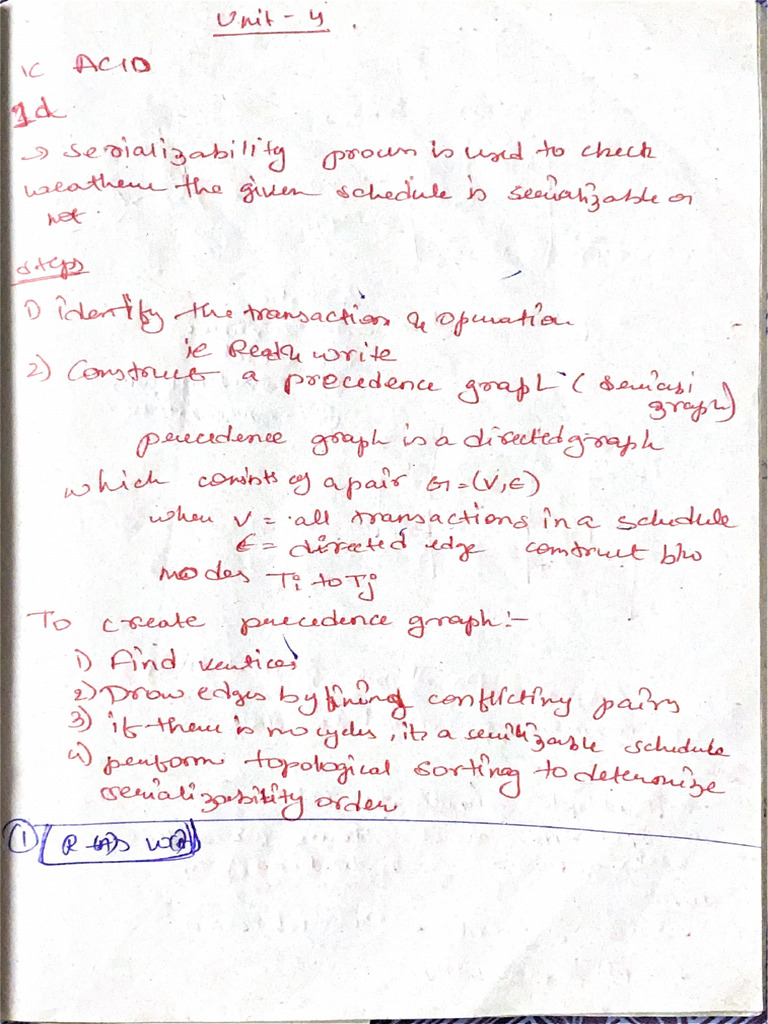 Unit - 4.
1c ACID
1d
→ Serializability process is used to check
weathere the given schedule is serializable or
not.
steps
1) identify the transaction & operation
ie Read & write
2) Construct a precedence graph (
graph)
precedence graph is a directed graph
which consists of a pair G=(V,E)
when V = all transactions in a schedule
E = directed edge construct b/w
nodes Ti to Tj
To create precedence graph:-
1) Find vertices
2) Draw edges by fining conflicting pairs
3) if there is no cycles, its a serilizable schedule
4) perform topological sorting to determine
serializability order
① R